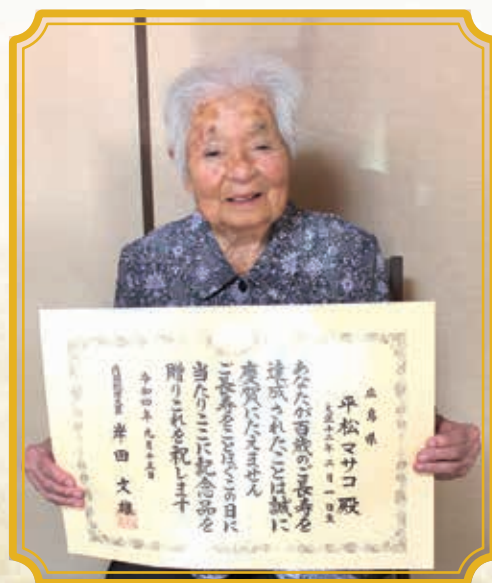 広島県
平松マサコ殿
大正十二年二月一日生
あなたが百歳のご長寿を
達成されたことは誠に
慶賀にたえません
ご長寿をことほぐこの日に
当たりここに記念品を
贈りこれを祝します
令和四年九月十五日
内閣総理大臣 岸田文雄